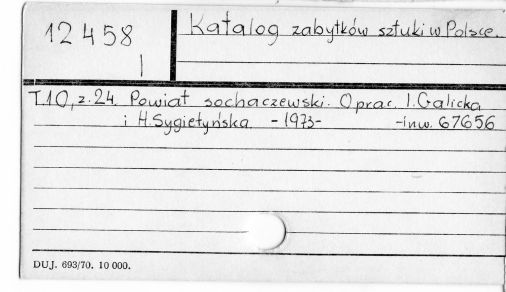 12458
I
Katalog zabytków sztuki w Polsce.
T.10, z. 24. Powiat sochaczewski. Oprac. I. Galicka
i H. Sygietyńska. -1973- -inw. 67656
DUJ. 693/70. 10 000.